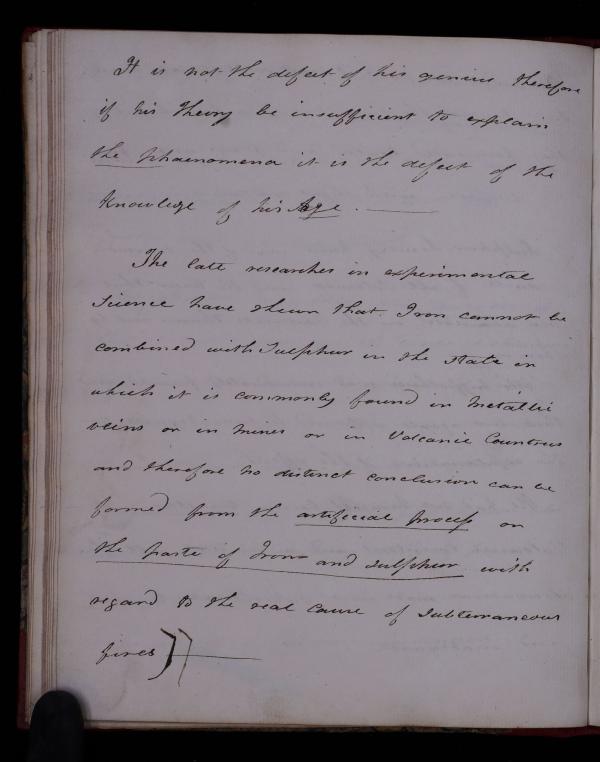 It is not the defect of his genius therefore
if his theory be insufficient to explain
the phaenomena it is the defect of the
Knowledge of his Age. —
The late researches in experimental
Science have shewn that Iron cannot be
combined with Sulphur in the state in
which it is commonly found in Metallic
veins or in mines or in Volcanic Countries
and therefore no distinct conclusion can be
formed from the artificial process on
the paste of Iron and sulphur with
regard to the real cause of subterraneous
fires]] —